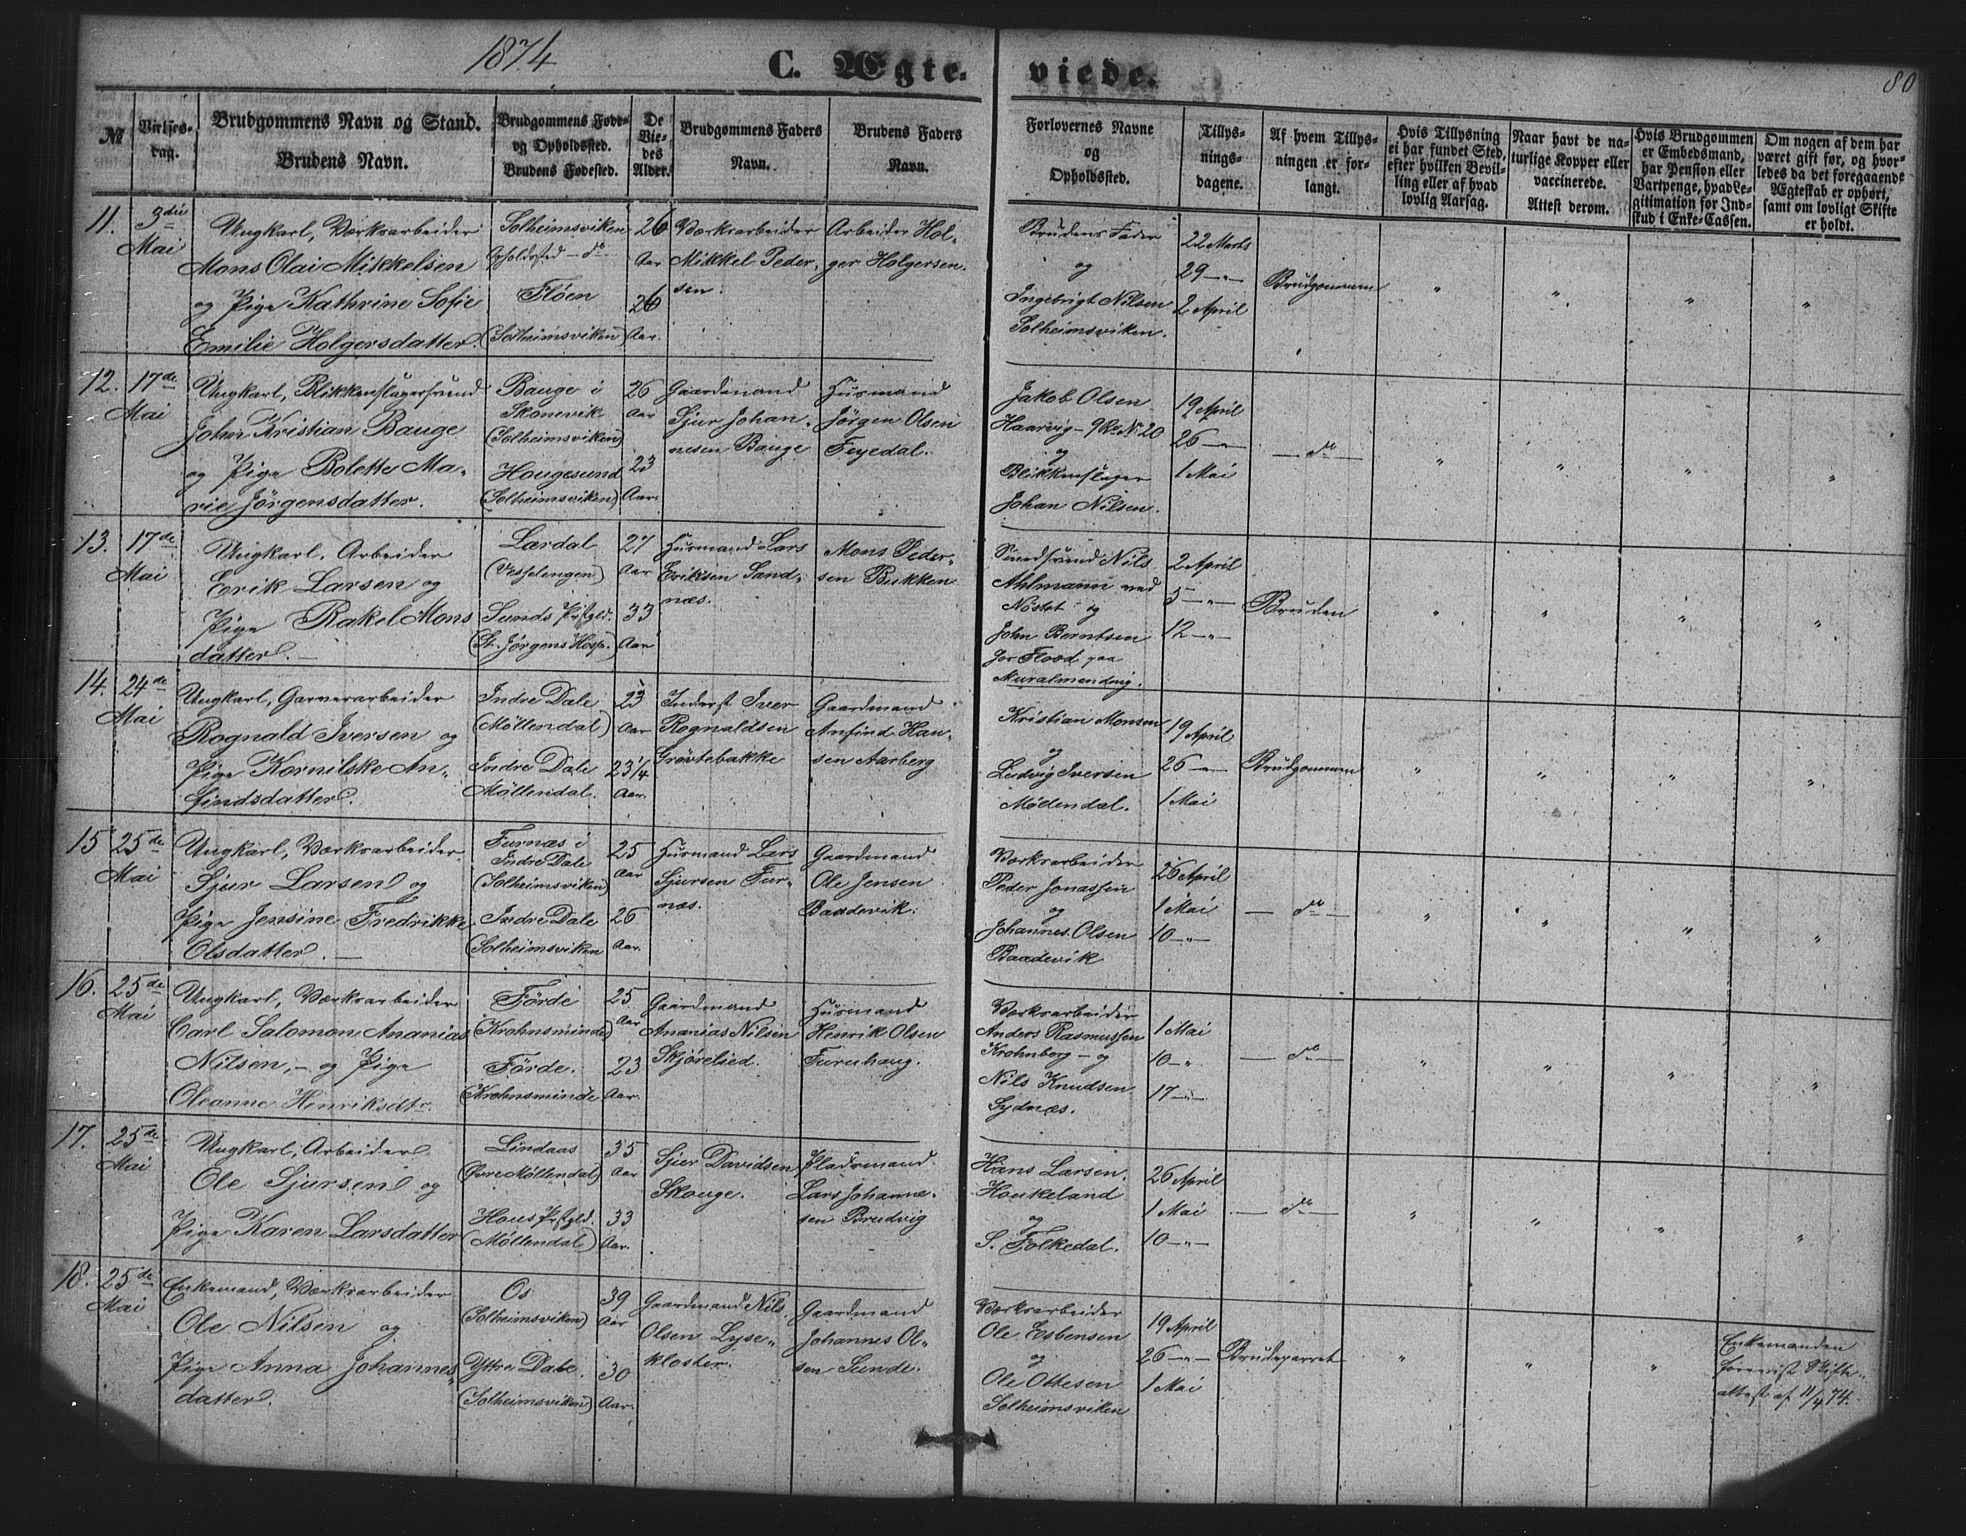 1874
C. Ægte-
viede.
80
№
Vielses-
dag.
Brudgommens Navn og Stand.
Brudens Navn.
Brudgommens Føde-
og Opholdssted.
Brudens Fødested.
De
Vie-
des
Alder.
Brudgommens Faders
Navn.
Brudens Faders
Navn.
Forlovernes Navne
og
Opholdssted.
Tillys-
nings-
dagene.
Af hvem Tillys-
ningen er for-
langt.
Hvis Tillysning
ei har fundet Sted,
efter hvilken Bevil-
ling eller af hvad
lovlig Aarsag.
Naar havt de na-
turlige Kopper eller
vaccinerede.
Attest derom.
Hvis Brudgommen
er Embedsmand,
har Pension eller
Vartpenge, hvad Le-
gitimation for Ind-
skud i Enke-Cassen.
Om nogen af dem har
været gift før, og hvor-
ledes da det foregaaende
Ægteskab er ophørt,
samt om lovligt Skifte
er holdt.
11.
3die
Mai
Ungkarl, Værksarbeider
Mons Olai Mikkelsen
og Pige Kathrine Sofie
Emilie Holgersdatter.
Solheimsviken
Opholdssted - do
Fløen
(Solheimsviken)
26
Aar
26
Aar.
Værksarbeider
Mikkel Peder-
sen.
Arbeider Hol-
ger Holgersen.
Brudens Fader
og
Ingebrigt Nilsen
Solheimsviken.
22 Marts
29 - " -
2 April
Brudgommen
" " " "
12.
17de
Mai
Ungkarl, Blikkenslagersvend
John Kristian Bauge
og Pige Bolette Ma-
rie Jørgensdatter.
Bauge i
Skonevik
(Solheimsviken)
Hougesund
(Solheimsviken)
26
Aar
23
Aar.
Gaardmand
Sjur Johan-
nesen Bauge
Husmand
Jørgen Olsen
Feyedal.
Jakob Olsen
Haarvig - 9 R. No 20
og
Blikkenslager
Johan Nilsen.
19 April
26 - " -
1 Mai
- do -
" " " "
13.
17de
Mai
Ungkarl, Arbeider
Erik Larsen og
Pige Rakel Mons
datter. -
Lærdal
Sunds Præstgld.
(St. Jørgens Hosp.)
27
Aar
33
Aar
Husmand Lars
Eriksen Sand-
næs.
Mons Peder-
sen Bukken
Nils
Ahlmann ved
Nøstet og
John Berntsen
for Flood paa
Muralmending.
2 April
5 - " -
12 - " -
Bruden
" " " "
14.
24de
Mai
Ungkarl, Garverarbeider
Rognald Iversen og
Pige Kornilske An-
findsdatter.
Indre Dale
(Møllendal)
Indre Dale
Møllendal.
23
Aar
23 1/4
Aar.
Inderst Iver
Rognaldsen
Grøvtebakke
Gaardmand
Anfind Han-
sen Aarberg
Kristian Monsen
og
Ludvig Iversen
Møllendal.
19 April
26 - " -
1 Mai
Brudgommen
" " " "
15
25de
Mai
Ungkarl, Værksarbeider
Sjur Larsen og
Pige Jensine Fredrikke
Olsdatter. -
Furnæs i
Indre Dale
(Solheimsviken)
Indre Dale
(Solheimsviken
25
Aar
26
Aar.
Husmand Lars
Sjursen Fur-
næs.
Gaardmand
Ole Jensen
Baadevik.
Værksarbeider
Peder Jonassen
og
Johannes Olsen
Baadevik
26 April
1 Mai
10 - " -
- do -
" " " "
16.
25de
Mai
Ungkarl, Værksarbeider
Carl Salomon Ananias
Nilsen, - og Pige
Oleanne Henriksdtr.
Førde
(Krohnsminde)
Førde.
(Krohnsminde
25
Aar
23
Aar.
Gaardmand
Ananias Nilsen
Skjørelied.
Husmand
Henrik Olsen
Furuhaug.
Værksarbeider
Anders Rasmussen
Krohnberg - og
Nils Knudsen
Sydnæs.
1 Mai
10 - "
17 - " -
- do -
" " " "
17.
25de
Mai
Ungkarl, Arbeider
Ole Sjursen og
Pige Karen Larsdatter
Lindaas
(Øvre Møllendal)
Hous Præstgld.
(Møllendal)
35
Aar
33
Aar.
Sjur Davidsen
Skouge.
Pladsmand
Lars Johanne-
sen Brudvig
Hans Larsen
Houkeland
og
S. Folkedal.
26 April
1 Mai
10 - " -
- do -
" " " "
18.
25de
Mai
Enkemand, Værksarbeider
Ole Nilsen og
Pige Anna Johannes
datter.
Os
(Solheimsviken)
Yttre Dale.
(Solheimsviken)
39
Aar
30
Aar.
Gaardmand Nils
Olsen Lyse-
kloster.
Gaardmand
Johannes Ol-
sen Sunde.
Værksarbeider
Ole Esbensen
og
Ole Ottesen
Solheimsviken
19 April
26 - " -
1 Mai
Brudeparret
" " "
Enkemanden
forevist Skifte-
attest af 11/4 74.